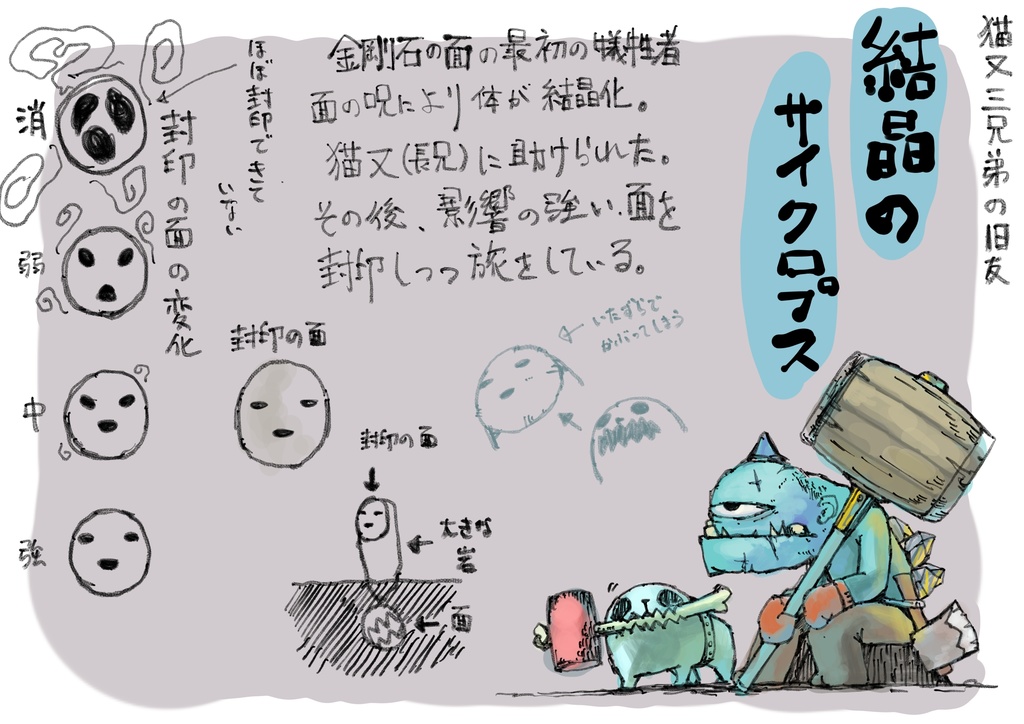 猫又三兄弟の旧友
結晶の
サイクロプス
金剛石の面の最初の犠牲者
面の呪により体が結晶化。
猫又(長兄)に助けられた。
その後、影響の強い面を
封印しつつ旅をしている。
ほぼ封印できて
いない
封印の面の変化
消
弱
中
強
封印の面
いたずらで
かぶってしまう
封印の面
大きな
岩
面